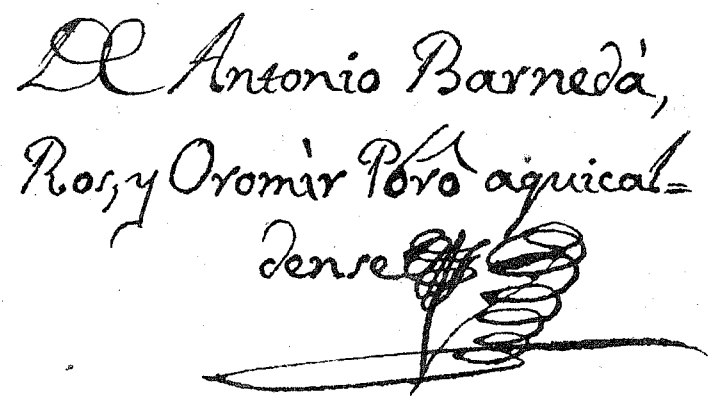 De Antonio Barnedá,
Ros, y Oromìr Pbro aquical=
dense